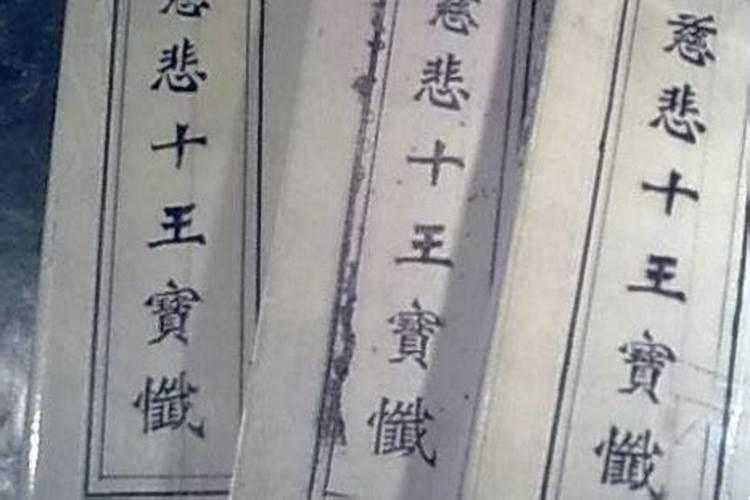 慈悲十王寶懺
慈悲十王寶懺
慈悲十王寶懺